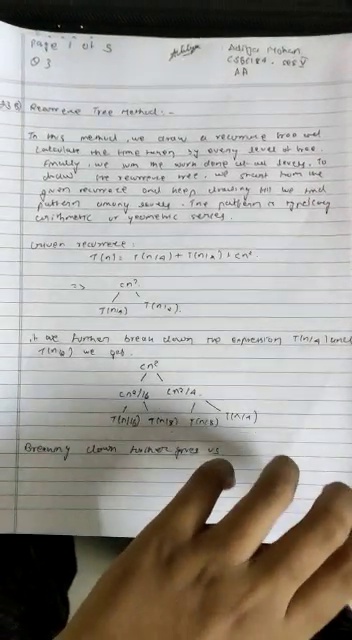 Page 1 of 5
Aditya Mohan
Q3
AA
Recurrence Tree Method:-
In this method, we draw a recurrence tree and
calculate the time taken by every level of tree.
Finally, we sum the work done at all levels. To
draw the recurrence tree, we start from the
given recurrence and keep drawing till we find
pattern among levels. The pattern is typically
arithmetic or geometric series.
Given recurrence:
T(n) = T(n/4) + T(n/2) + cn²
=> cn²
T(n/4) T(n/2)
if we further break down the expression T(n/4) and
T(n/2) we get.
cn²
cn²/16 cn²/4
T(n/16) T(n/8) T(n/8) T(n/4)
Breaking down further gives us